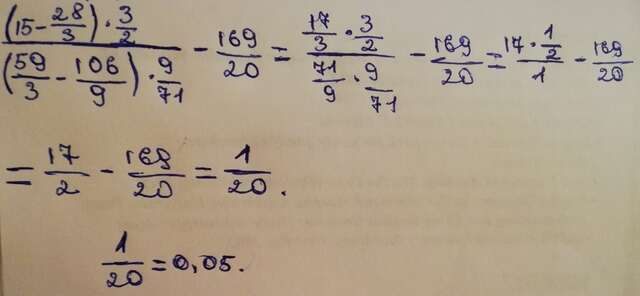 ((15 - 28/3) · 3/2) / ((59/3 - 106/9) · 9/71) - 169/20 = (17/3 · 3/2) / (71/9 · 9/71) - 169/20 = (17 · 1/2) / 1 - 169/20
= 17/2 - 169/20 = 1/20.
1/20 = 0,05.